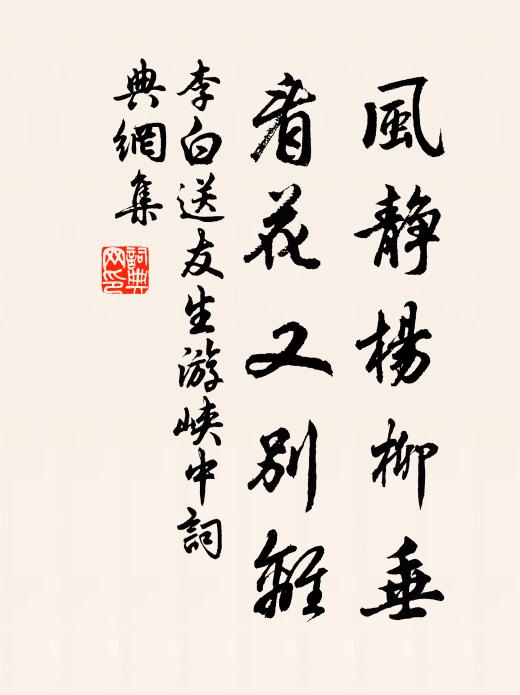 風靜楊柳垂
看花又別離
李白送友生游峽中詞
典網集
詞典
网印